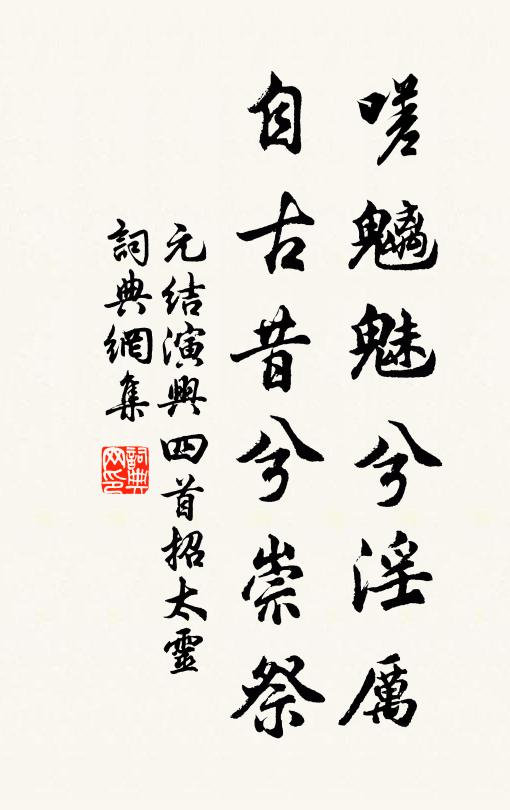 嗟魑魅兮淫厲
自古昔兮崇祭
元結演興四首招太靈
詞典網集
詞典网印